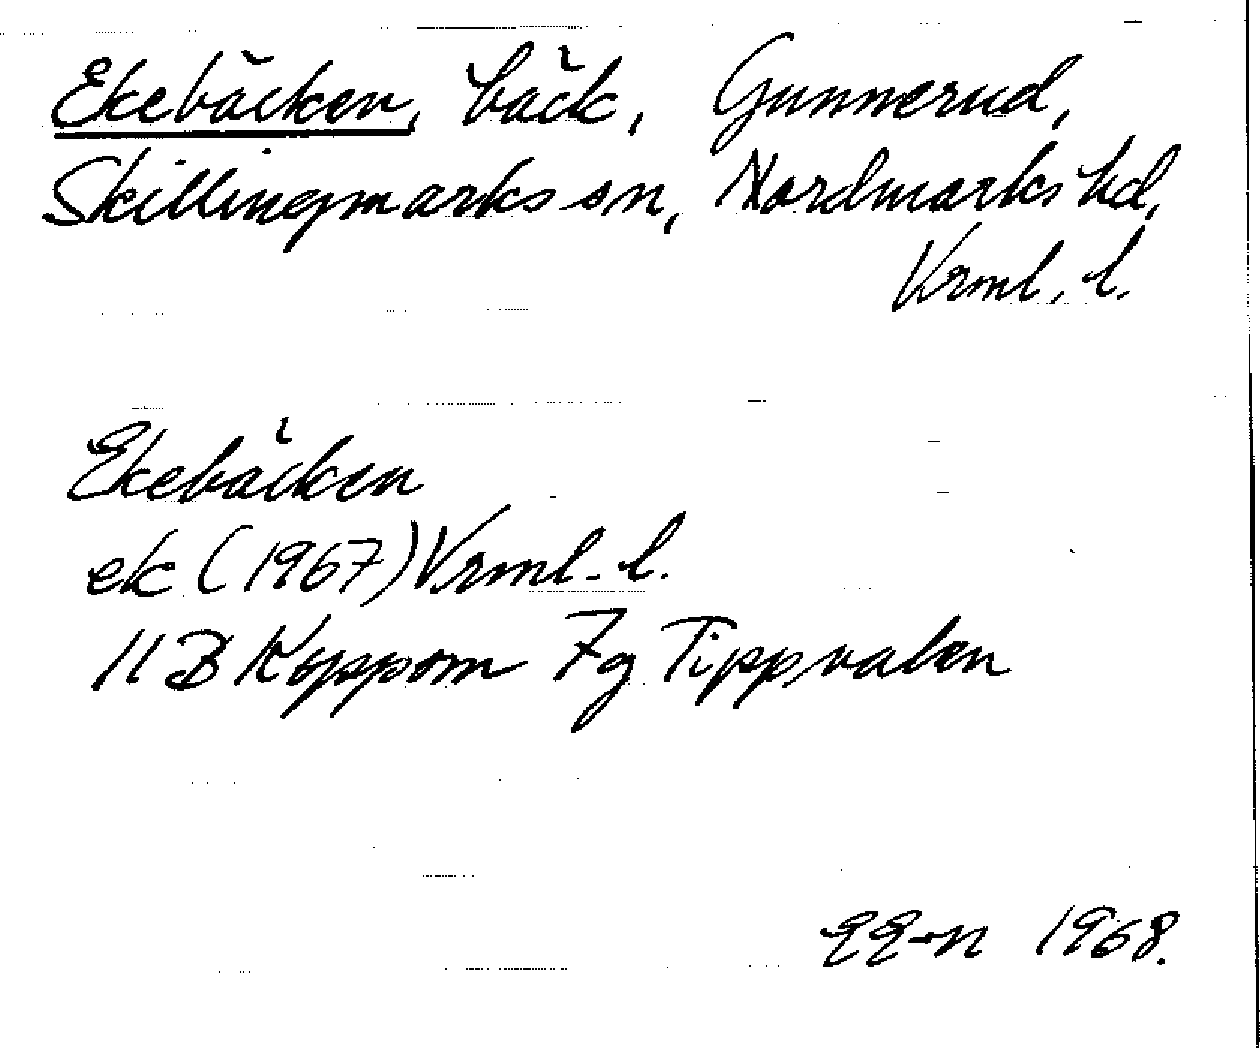 Ekebäcken, bäck, Gunnerud,
Skillingmarks sn, Nordmarks hd,
Vrml. l.
Ekebäcken
ek (1967) Vrml. l.
11B Koppom 7g Tippvalen
EE-n 1968.